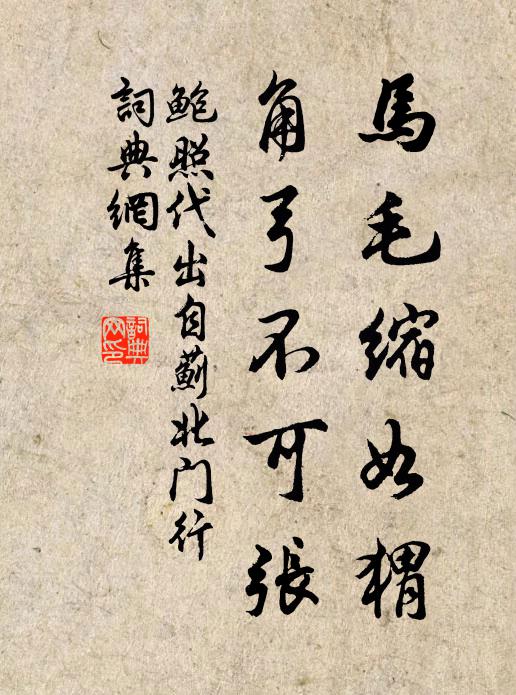 馬毛縮如猬
角弓不可張
鮑照代出自薊北门行
詞典網集
詞典
网印